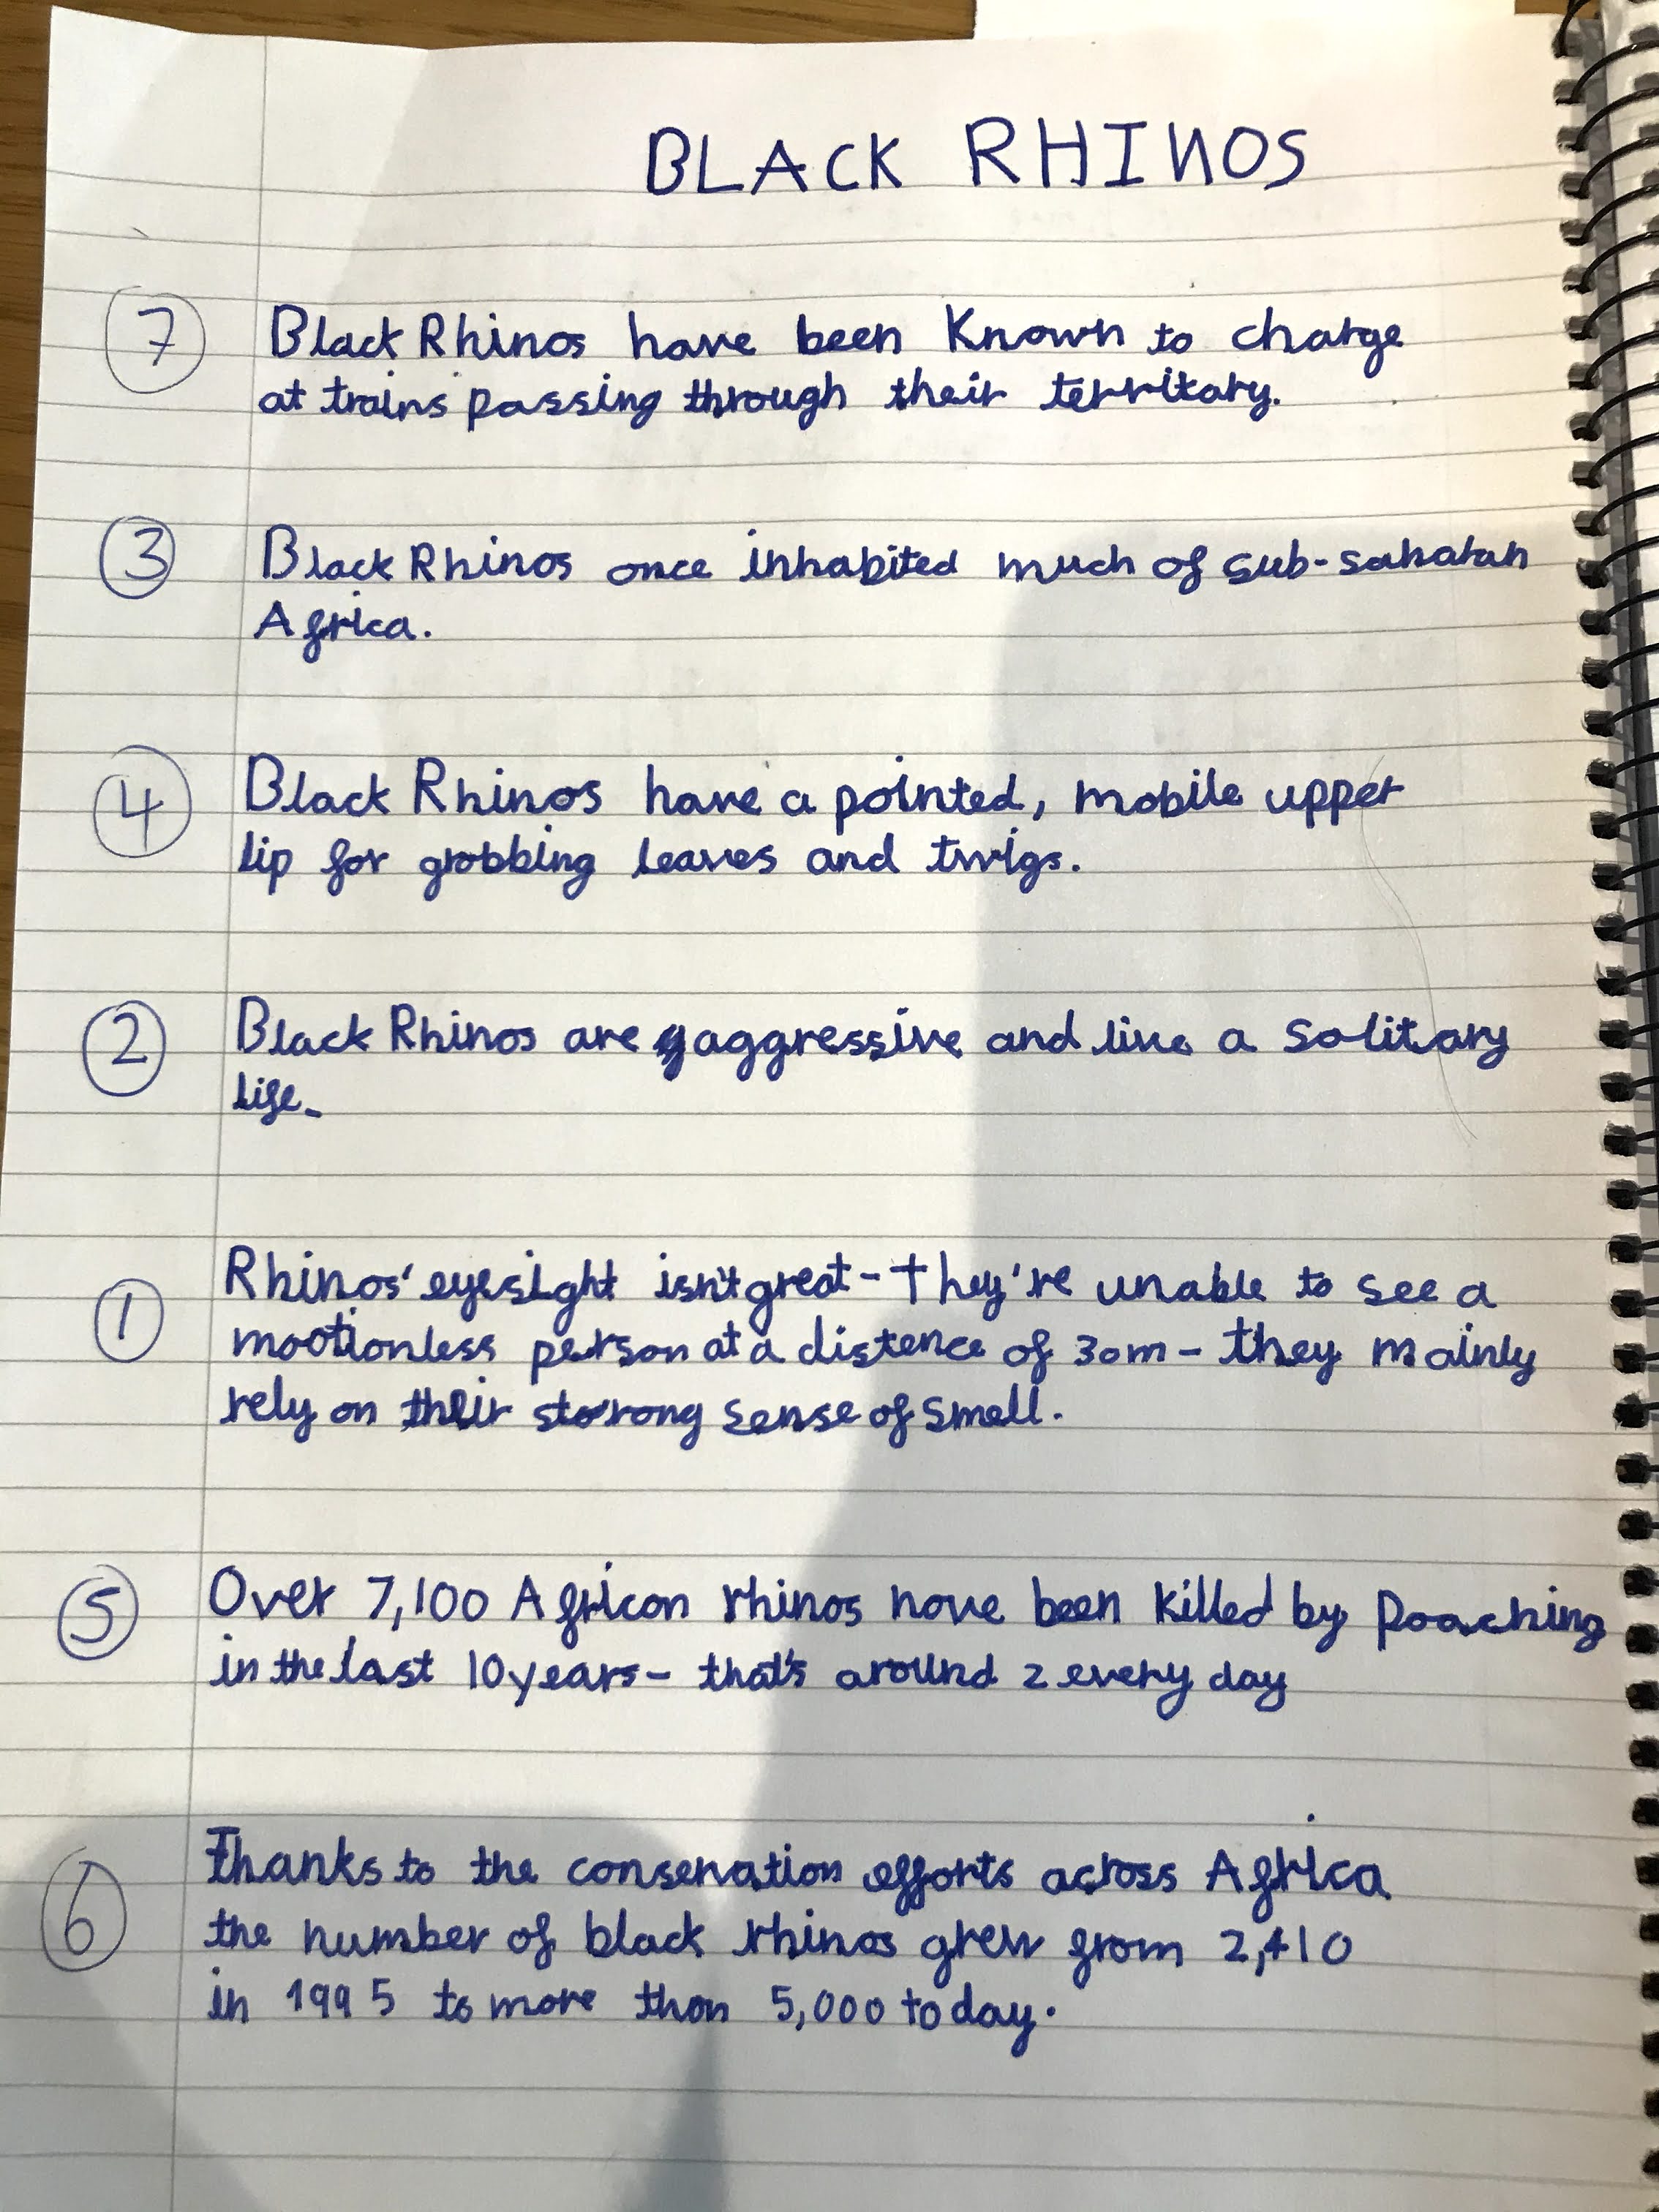 BLACK RHINOS
7 Black Rhinos have been Known to charge
at trains passing through their territory.
3 Black Rhinos once inhabited much of sub-saharan
Africa.
4 Black Rhinos have a pointed, mobile upper
lip for grabbing leaves and twigs.
2 Black Rhinos are aggressive and live a solitary
life.
Rhinos' eyesight isn't great - they're unable to see a
1 mootionless person at a distence of 30m - they mainly
rely on their storong sense of smell.
5 Over 7,100 African rhinos have been killed by poaching
in the last 10 years - that's around 2 every day
Thanks to the conservation efforts across Africa
6 the number of black rhinos grew from 2,410
in 1995 to more than 5,000 today.